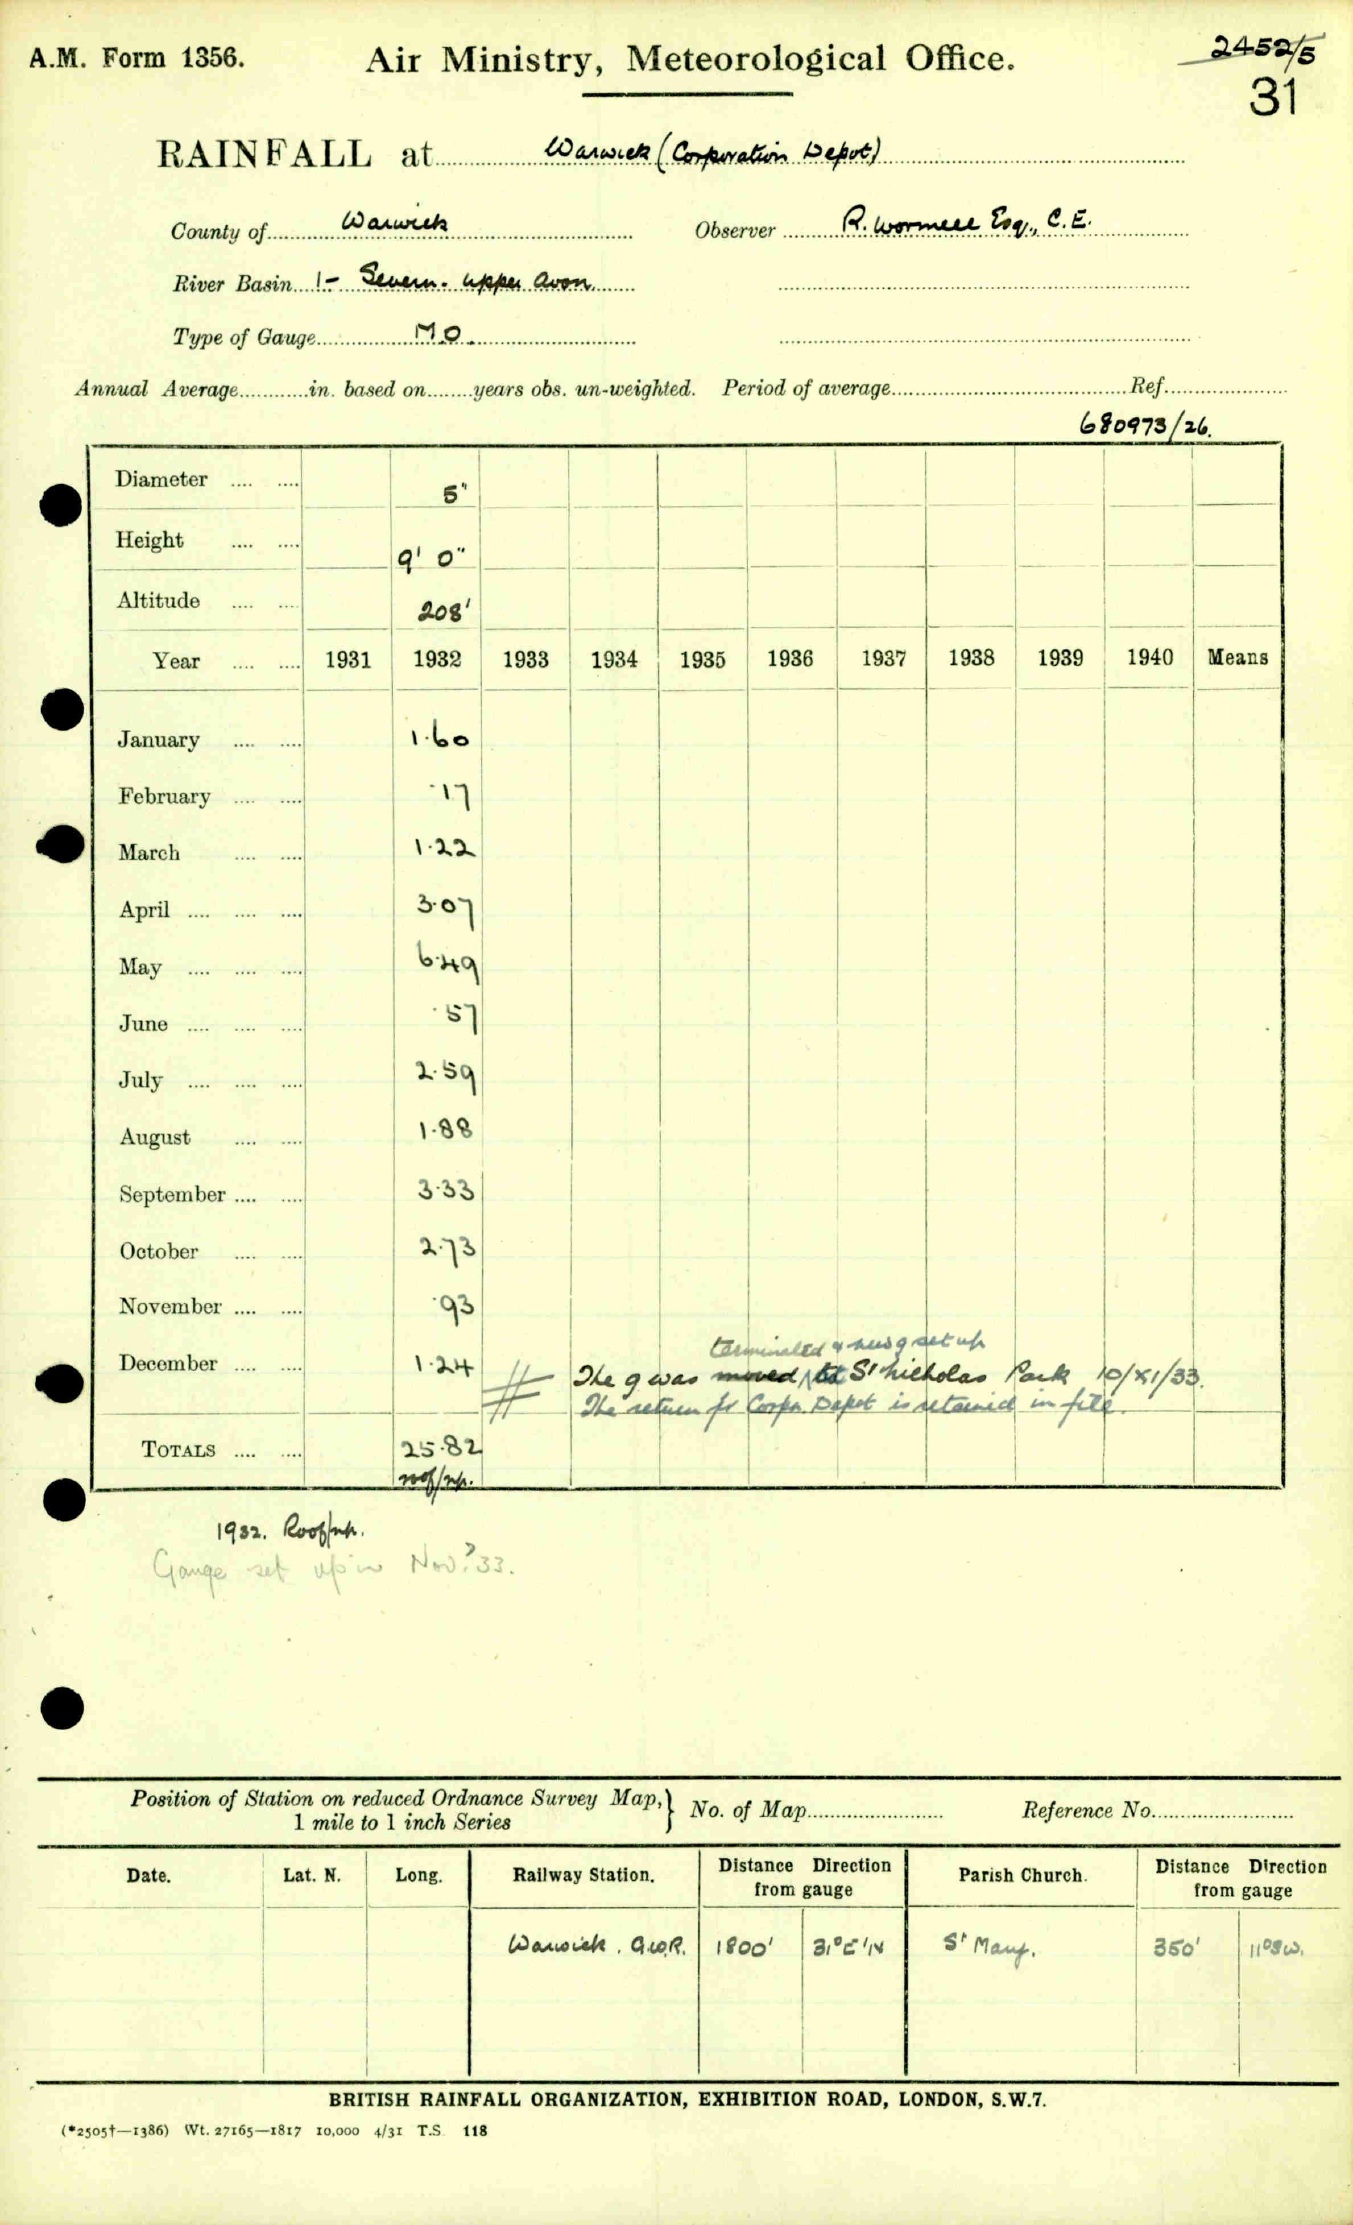 A.M. Form 1356. Air Ministry, Meteorological Office. 2452/5
31
RAINFALL at Warwick (Corporation Depot)
County of Warwick Observer R. Wormell Esq., C.E.
River Basin 1- Severn. Upper Avon.
Type of Gauge M.O.
Annual Average in. based on years obs. un-weighted. Period of average Ref.
680973/26.
Diameter 5"
Height 9' 0"
Altitude 208'
Year 1931 1932 1933 1934 1935 1936 1937 1938 1939 1940 Means
January 1.60
February .17
March 1.22
April 3.07
May 6.49
June .57
July 2.59
August 1.88
September 3.33
October 2.73
November .93
terminated & new g set up
December 1.24 The g was moved St Nicholas Park 10/XI/33.
The return for Corpn. Depot is retained in file.
TOTALS 25.82
roof/np.
1932. Roof/np.
Gauge set up in Nov. ?33.
Position of Station on reduced Ordnance Survey Map, 1 mile to 1 inch Series } No. of Map Reference No.
Date. Lat. N. Long. Railway Station. Distance Direction from gauge Parish Church. Distance Direction from gauge
Warwick. G.W.R. 1800' 31°E'N St Mary. 350' 11°SW.
BRITISH RAINFALL ORGANIZATION, EXHIBITION ROAD, LONDON, S.W.7.
(*2505†—1386) Wt. 27165—1817 10,000 4/31 T.S. 118